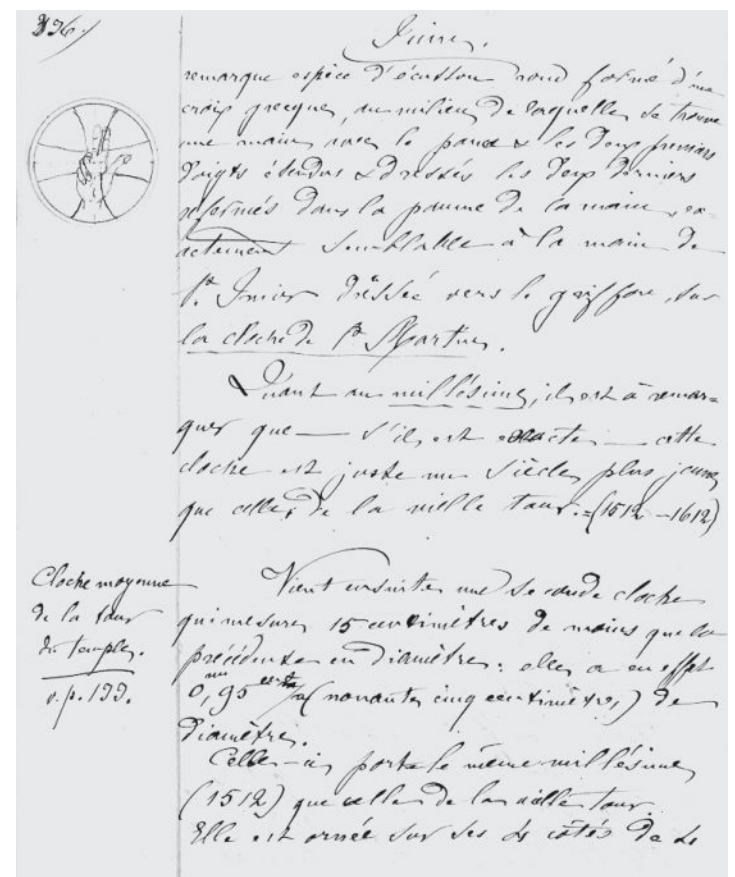 Junier.
remarque espèce d'écusson rond formé d'une
croix grecque, au milieu de laquelle se trouve
une main avec le pouce & les deux premiers
doigts étendus & dressés les deux derniers
refermés dans la paume de la main, ex-
actement semblable à la main de
St. dressée vers le griffon, sur
la cloche de St Martin.
Quant au millésime, il est à remar=
quer que — s'il est exacte — cette
cloche est juste un siècle plus jeune
que celle de la vieille tour. = (1512 – 1612)
Cloche moyenne
de la tour
du temple.
v. p. 199.
Vient ensuite une seconde cloche
qui mesure 15 centimètres de moins que la
précédente en diamètre : elle a en effet
0,95 (nonante cinq centimètres,) de
diamètre.
Celle-ci porte le même millésime
(1512) que celle de la vieille tour.
Elle est ornée sur ses côtés de